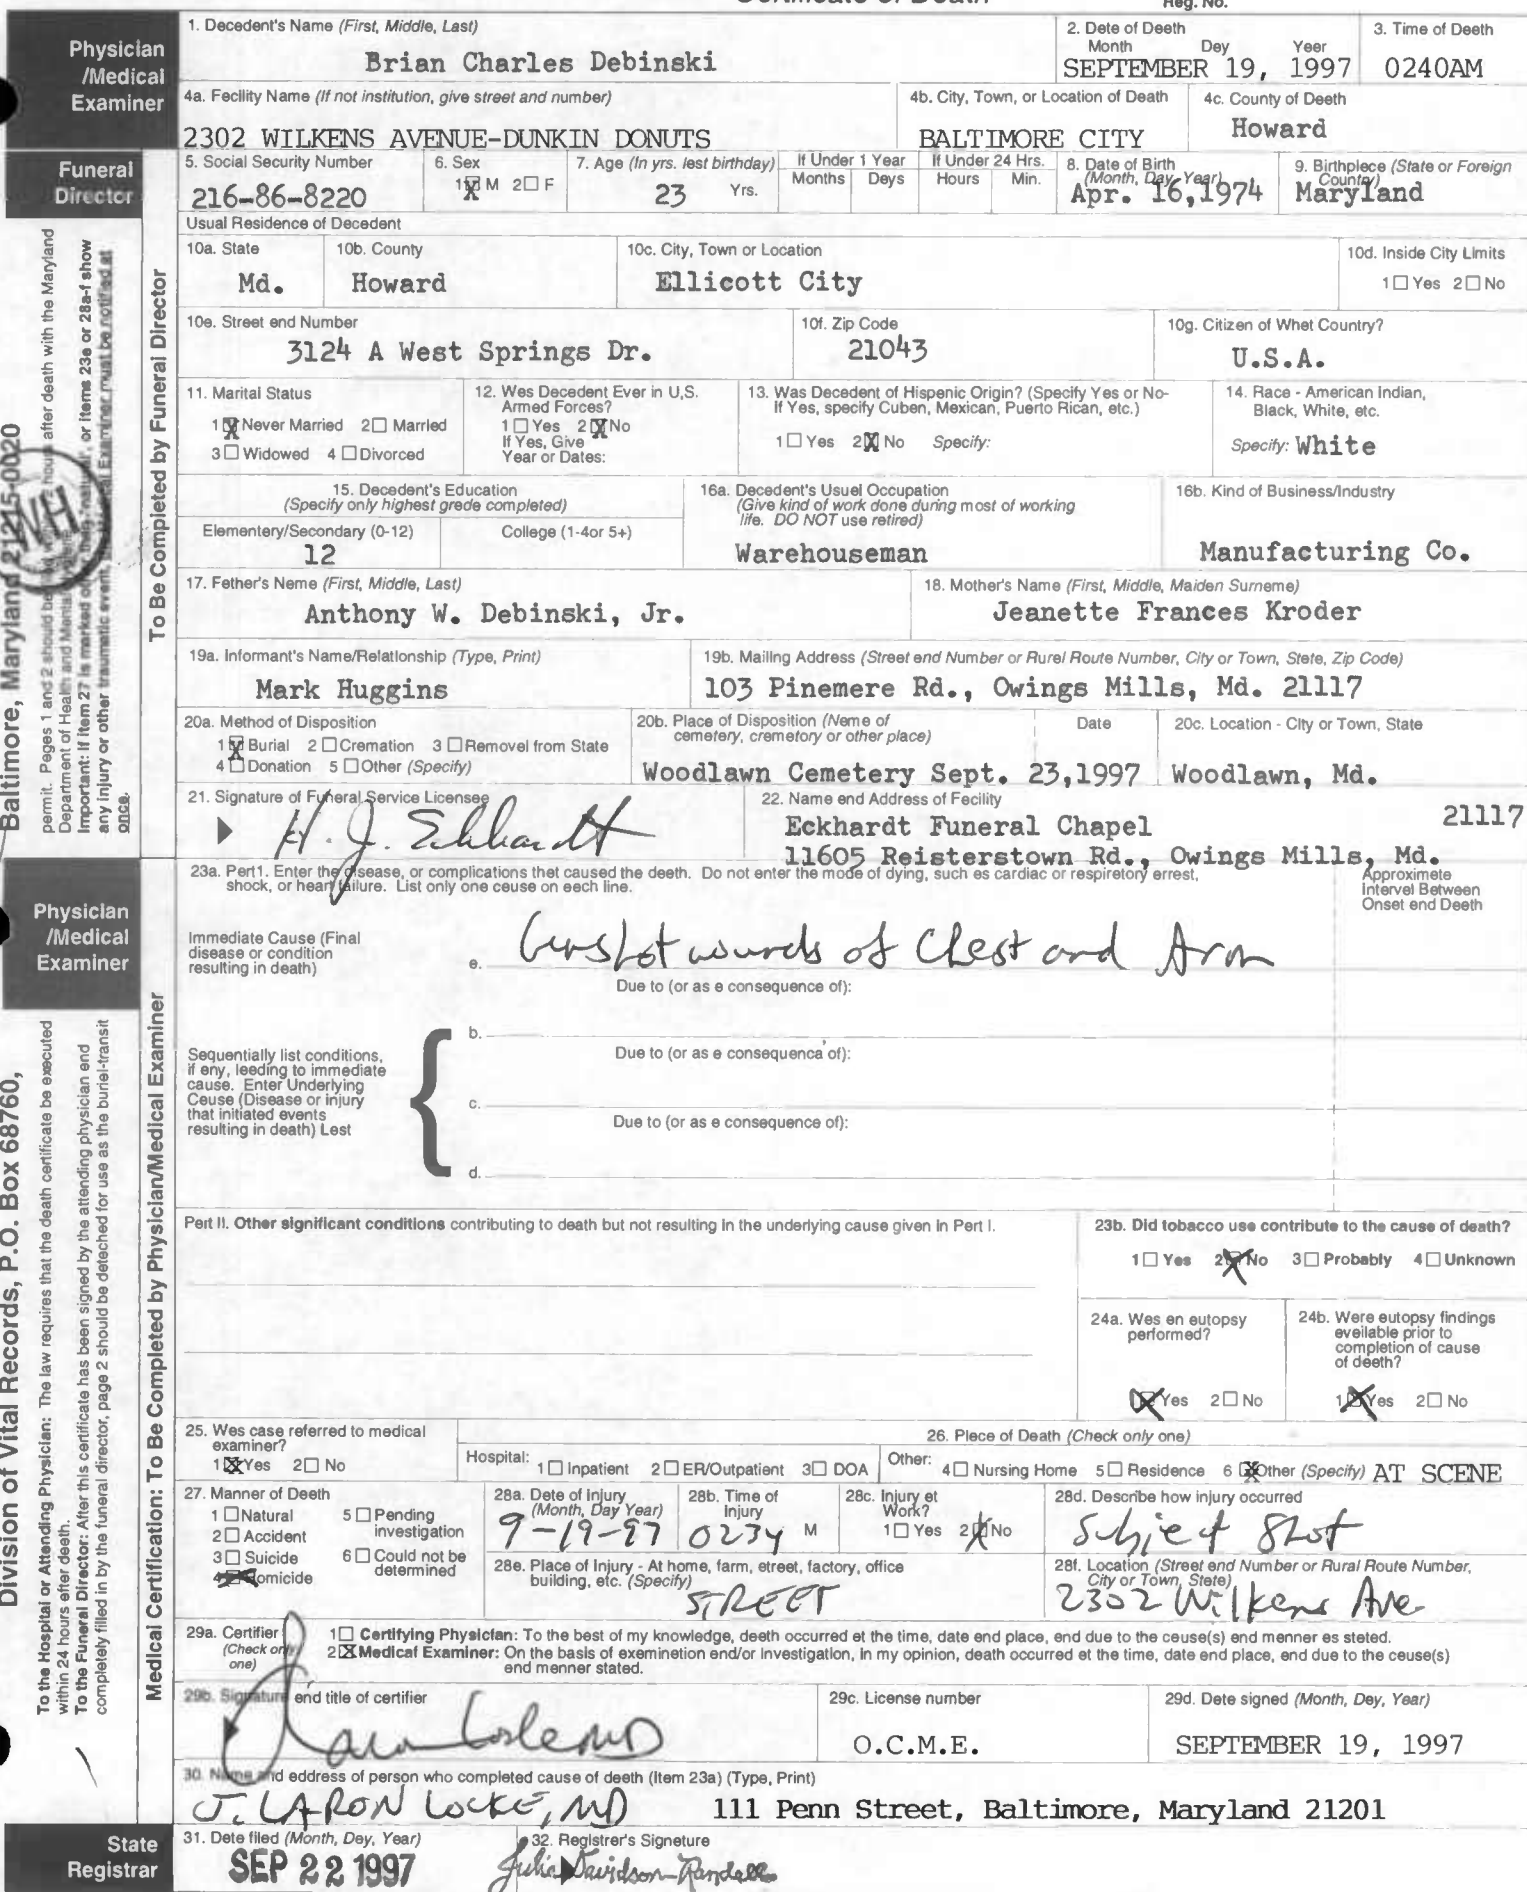 Certificate of Death
Reg. No.
Physician
/Medical
Examiner
1. Decedent's Name (First, Middle, Last)
Brian Charles Debinski
2. Dete of Deeth
Month Dey Yeer
SEPTEMBER 19, 1997
3. Time of Deeth
0240AM
4a. Fecility Name (If not institution, give street and number)
2302 WILKENS AVENUE-DUNKIN DONUTS
4b. City, Town, or Location of Death
BALTIMORE CITY
4c. County of Deeth
Howard
Funeral
Director
5. Social Security Number
216-86-8220
6. Sex
1 X M 2 □ F
7. Age (In yrs. lest birthday)
23 Yrs.
If Under 1 Year
Months Deys
If Under 24 Hrs.
Hours Min.
8. Date of Birth
(Month, Day, Year)
Apr. 16,1974
9. Birthplece (State or Foreign
Country)
Maryland
Usual Residence of Decedent
10a. State
Md.
10b. County
Howard
10c. City, Town or Location
Ellicott City
10d. Inside City Limits
1 □ Yes 2 □ No
10e. Street end Number
3124 A West Springs Dr.
10f. Zip Code
21043
10g. Citizen of Whet Country?
U.S.A.
11. Marital Status
1 X Never Married 2 □ Married
3 □ Widowed 4 □ Divorced
12. Wes Decedent Ever in U,S.
Armed Forces?
1 □ Yes 2 X No
If Yes, Give
Year or Dates:
13. Was Decedent of Hispenic Origin? (Specify Yes or No-
If Yes, specify Cuben, Mexican, Puerto Rican, etc.)
1 □ Yes 2 X No Specify:
14. Race - American Indian,
Black, White, etc.
Specify: White
15. Decedent's Education
(Specify only highest grede completed)
Elementery/Secondary (0-12)
12
College (1-4or 5+)
16a. Decedent's Usuel Occupation
(Give kind of work done during most of working
life. DO NOT use retired)
Warehouseman
16b. Kind of Business/Industry
Manufacturing Co.
17. Fether's Neme (First, Middle, Last)
Anthony W. Debinski, Jr.
18. Mother's Name (First, Middle, Maiden Surneme)
Jeanette Frances Kroder
19a. Informant's Name/Relationship (Type, Print)
Mark Huggins
19b. Mailing Address (Street end Number or Rurel Route Number, City or Town, Stete, Zip Code)
103 Pinemere Rd., Owings Mills, Md. 21117
20a. Method of Disposition
1 X Burial 2 □ Cremation 3 □ Removal from State
4 □ Donation 5 □ Other (Specify)
20b. Place of Disposition (Neme of
cemetery, cremetory or other place)
Date
Woodlawn Cemetery Sept. 23,1997
20c. Location - City or Town, State
Woodlawn, Md.
21. Signature of Funeral Service Licensee
H. J. Eckhardt
22. Name end Address of Fecility
Eckhardt Funeral Chapel 21117
11605 Reisterstown Rd., Owings Mills, Md.
To Be Completed by Funeral Director
Baltimore, Maryland 21215-0020
permit. Peges 1 and 2 should be hours after death with the Maryland
Department of Health and Mental
Important: If item 27 is marked or items 23e or 28a-f show
any injury or other traumatic event Examiner must be notified at
once.
Physician
/Medical
Examiner
23a. Pert1. Enter the disease, or complications thet caused the deeth. Do not enter the mode of dying, such es cardiac or respiretory errest,
shock, or heart failure. List only one ceuse on eech line.
Approximete
Intervel Between
Onset end Deeth
Immediate Cause (Final
disease or condition
resulting in death)
e. Gunshot wounds of Chest and Arm
Due to (or as e consequence of):
Sequentially list conditions,
if eny, leeding to immediate
cause. Enter Underlying
Ceuse (Disease or injury
that initiated events
resulting in death) Lest
b.
Due to (or as e consequence of):
c.
Due to (or as e consequence of):
d.
Part II. Other significant conditions contributing to death but not resulting in the underlying cause given in Pert I.
23b. Did tobacco use contribute to the cause of death?
1 □ Yes 2 X No 3 □ Probably 4 □ Unknown
24a. Wes en eutopsy
performed?
X Yes 2 □ No
24b. Were eutopsy findings
eveilable prior to
completion of cause
of deeth?
1 X Yes 2 □ No
25. Wes case referred to medical
examiner?
1 X Yes 2 □ No
26. Plece of Death (Check only one)
Hospital: 1 □ Inpatient 2 □ ER/Outpatient 3 □ DOA
Other: 4 □ Nursing Home 5 □ Residence 6 X Other (Specify) AT SCENE
27. Manner of Deeth
1 □ Natural 5 □ Pending
investigation
2 □ Accident
3 □ Suicide 6 □ Could not be
determined
4 X Homicide
28a. Dete of Injury
(Month, Day Year)
9-19-97
28b. Time of
Injury
0234 M
28c. Injury et
Work?
1 □ Yes 2 X No
28d. Describe how injury occurred
Subject Shot
28e. Place of Injury - At home, farm, etreet, factory, office
building, etc. (Specify)
STREET
28f. Location (Street end Number or Rural Route Number,
City or Town, Stete)
2302 Wilkens Ave
29a. Certifier
(Check only
one)
1 □ Certifying Physician: To the best of my knowledge, deeth occurred et the time, date end place, end due to the ceuse(s) end menner es steted.
2 X Medical Examiner: On the basis of exeminetion end/or Investigation, in my opinion, death occurred et the time, date end place, end due to the ceuse(s)
end menner stated.
29b. Signature end title of certifier
29c. License number
O.C.M.E.
29d. Date signed (Month, Dey, Year)
SEPTEMBER 19, 1997
30. Name and eddress of person who completed cause of deeth (Item 23a) (Type, Print)
J. LARON LOCKE, MD 111 Penn Street, Baltimore, Maryland 21201
Medical Certification: To Be Completed by Physician/Medical Examiner
Division of Vital Records, P.O. Box 68760,
To the Hospital or Attending Physician: The law requires that the death certificate be executed
within 24 hours efter death.
To the Funeral Director: After this certificate has been signed by the attending physician end
completely filled in by the funeral director, page 2 should be deteched for use as the buriel-transit
State
Registrar
31. Dete filed (Month, Dey, Year)
SEP 22 1997
32. Registrer's Signature
Julia Davidson-Randall